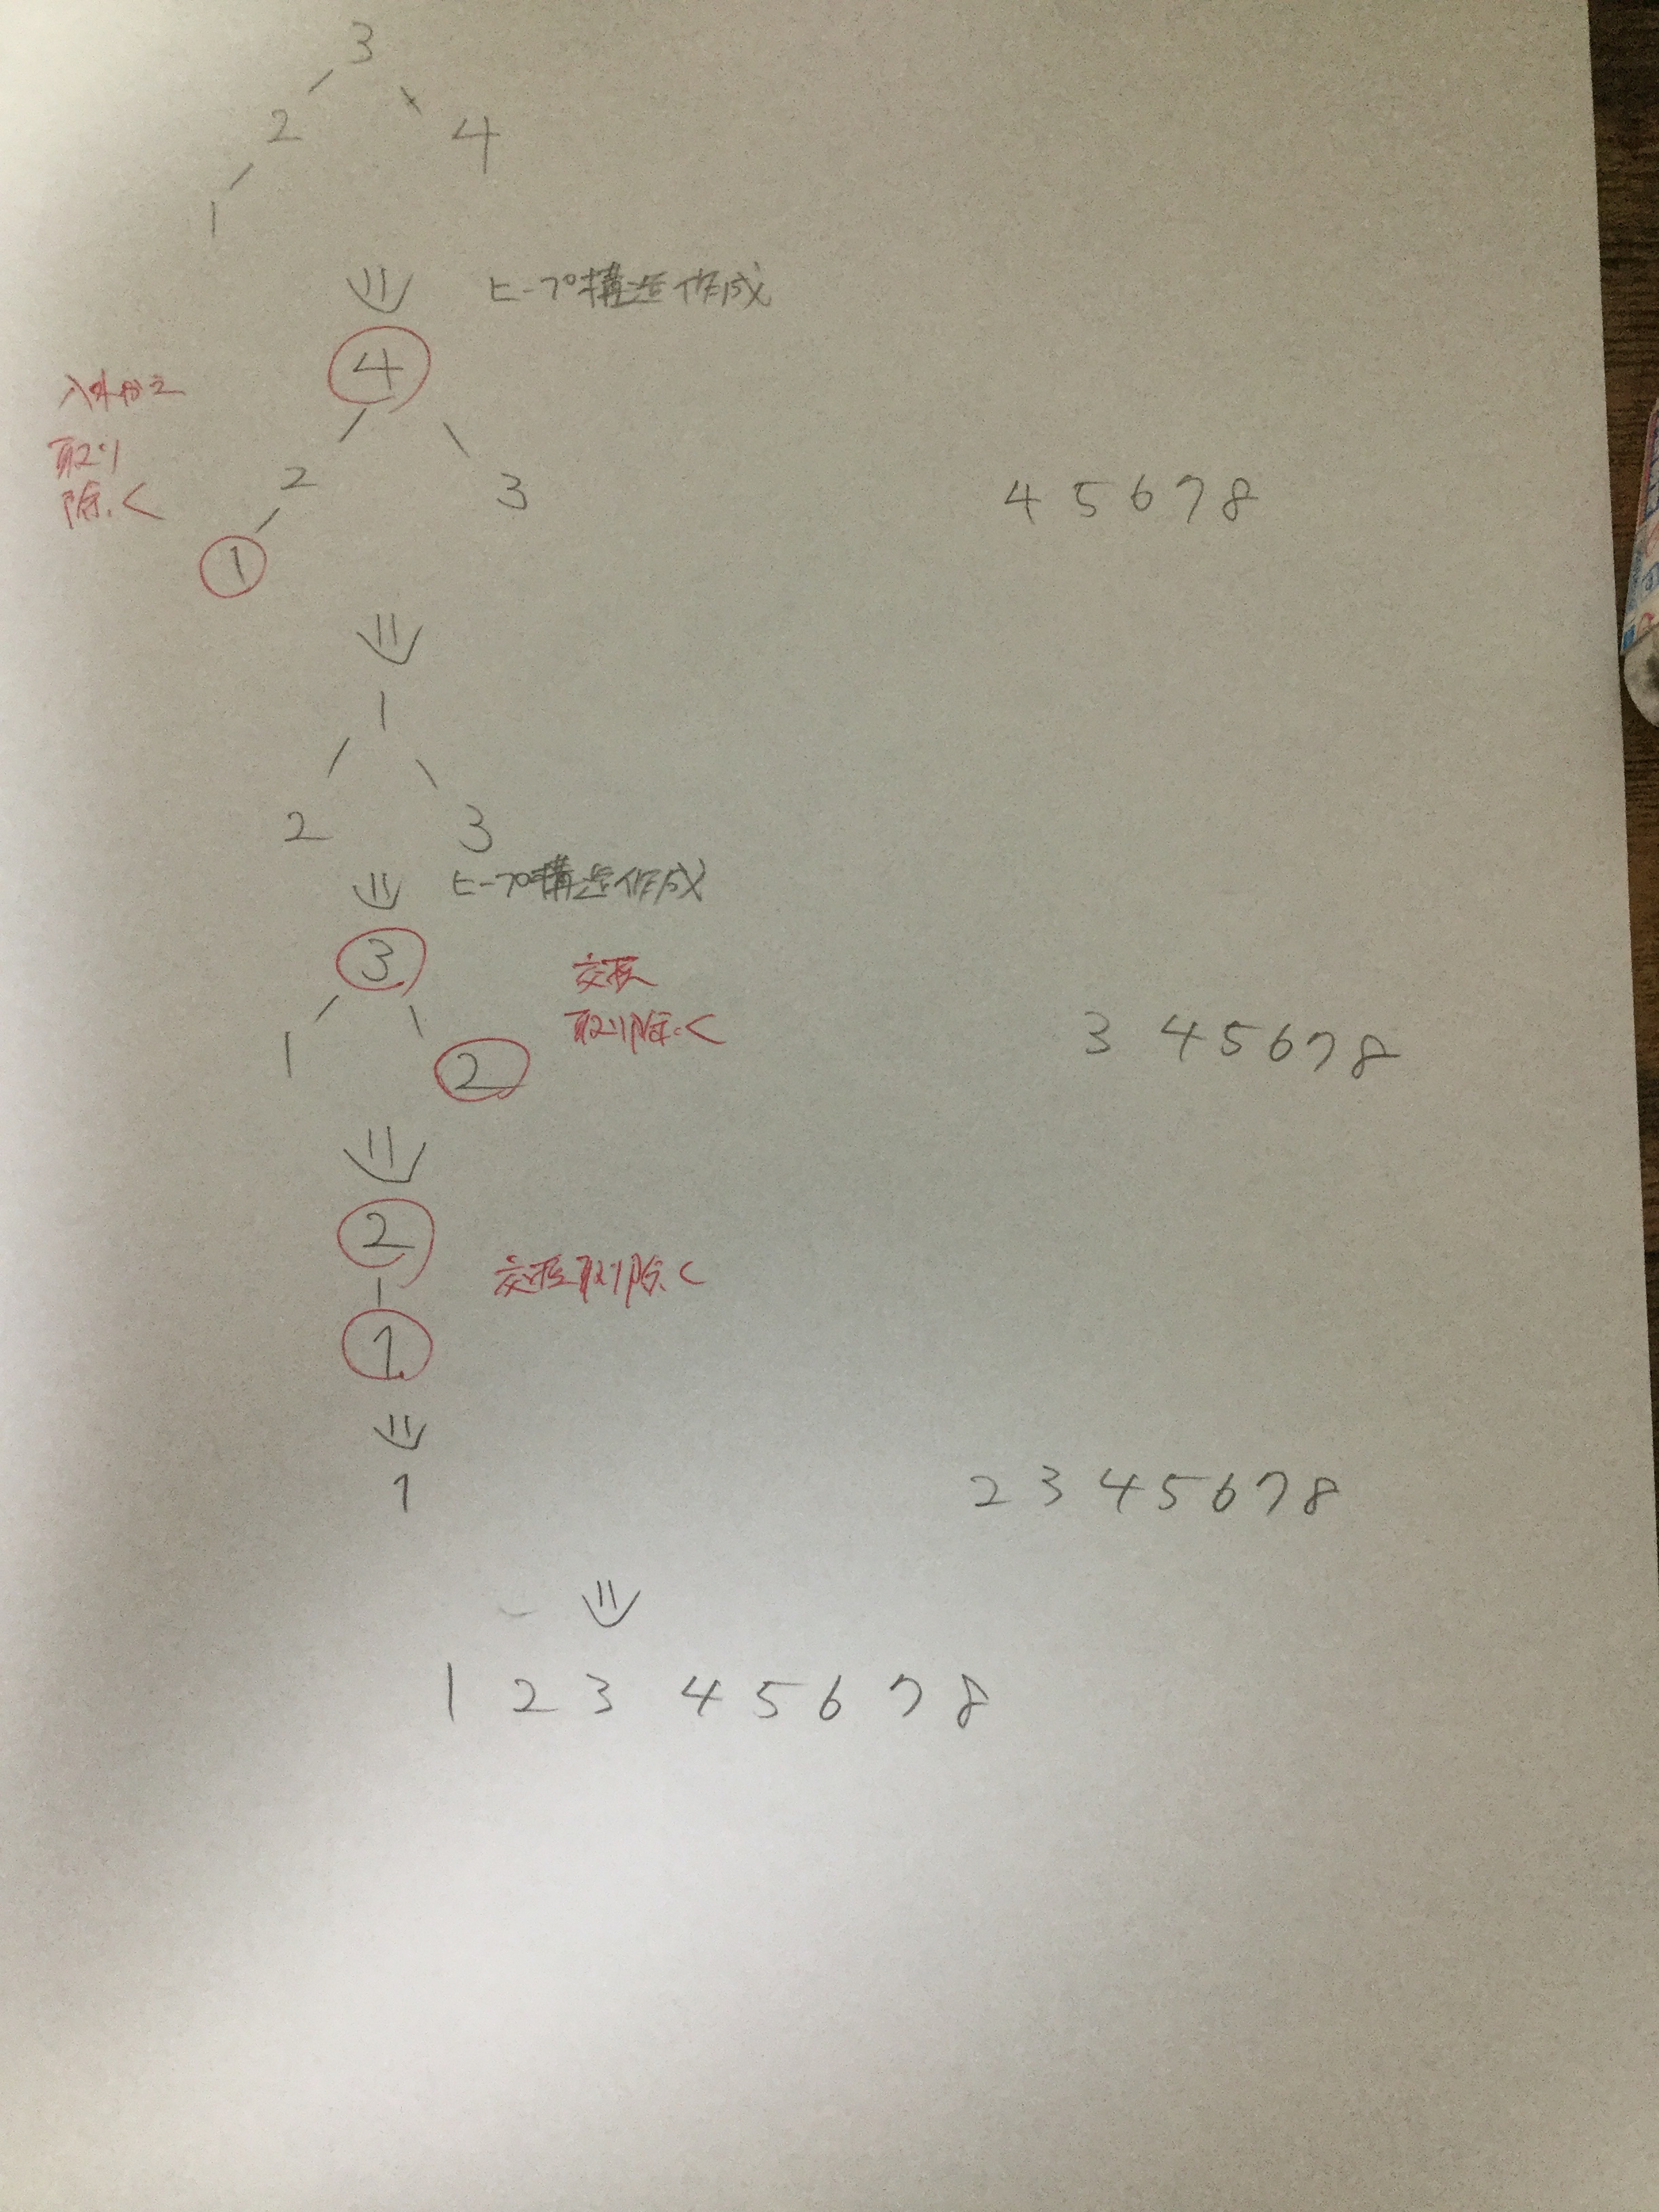 3
2 4
1
ヒープ構造作成
4
入れかえ
取り
除く
2 3
4 5 6 7 8
1
1
2 3
ヒープ構造作成
3
交換
取り除く
1 2
3 4 5 6 7 8
2
交換取り除く
1
1
2 3 4 5 6 7 8
1 2 3 4 5 6 7 8